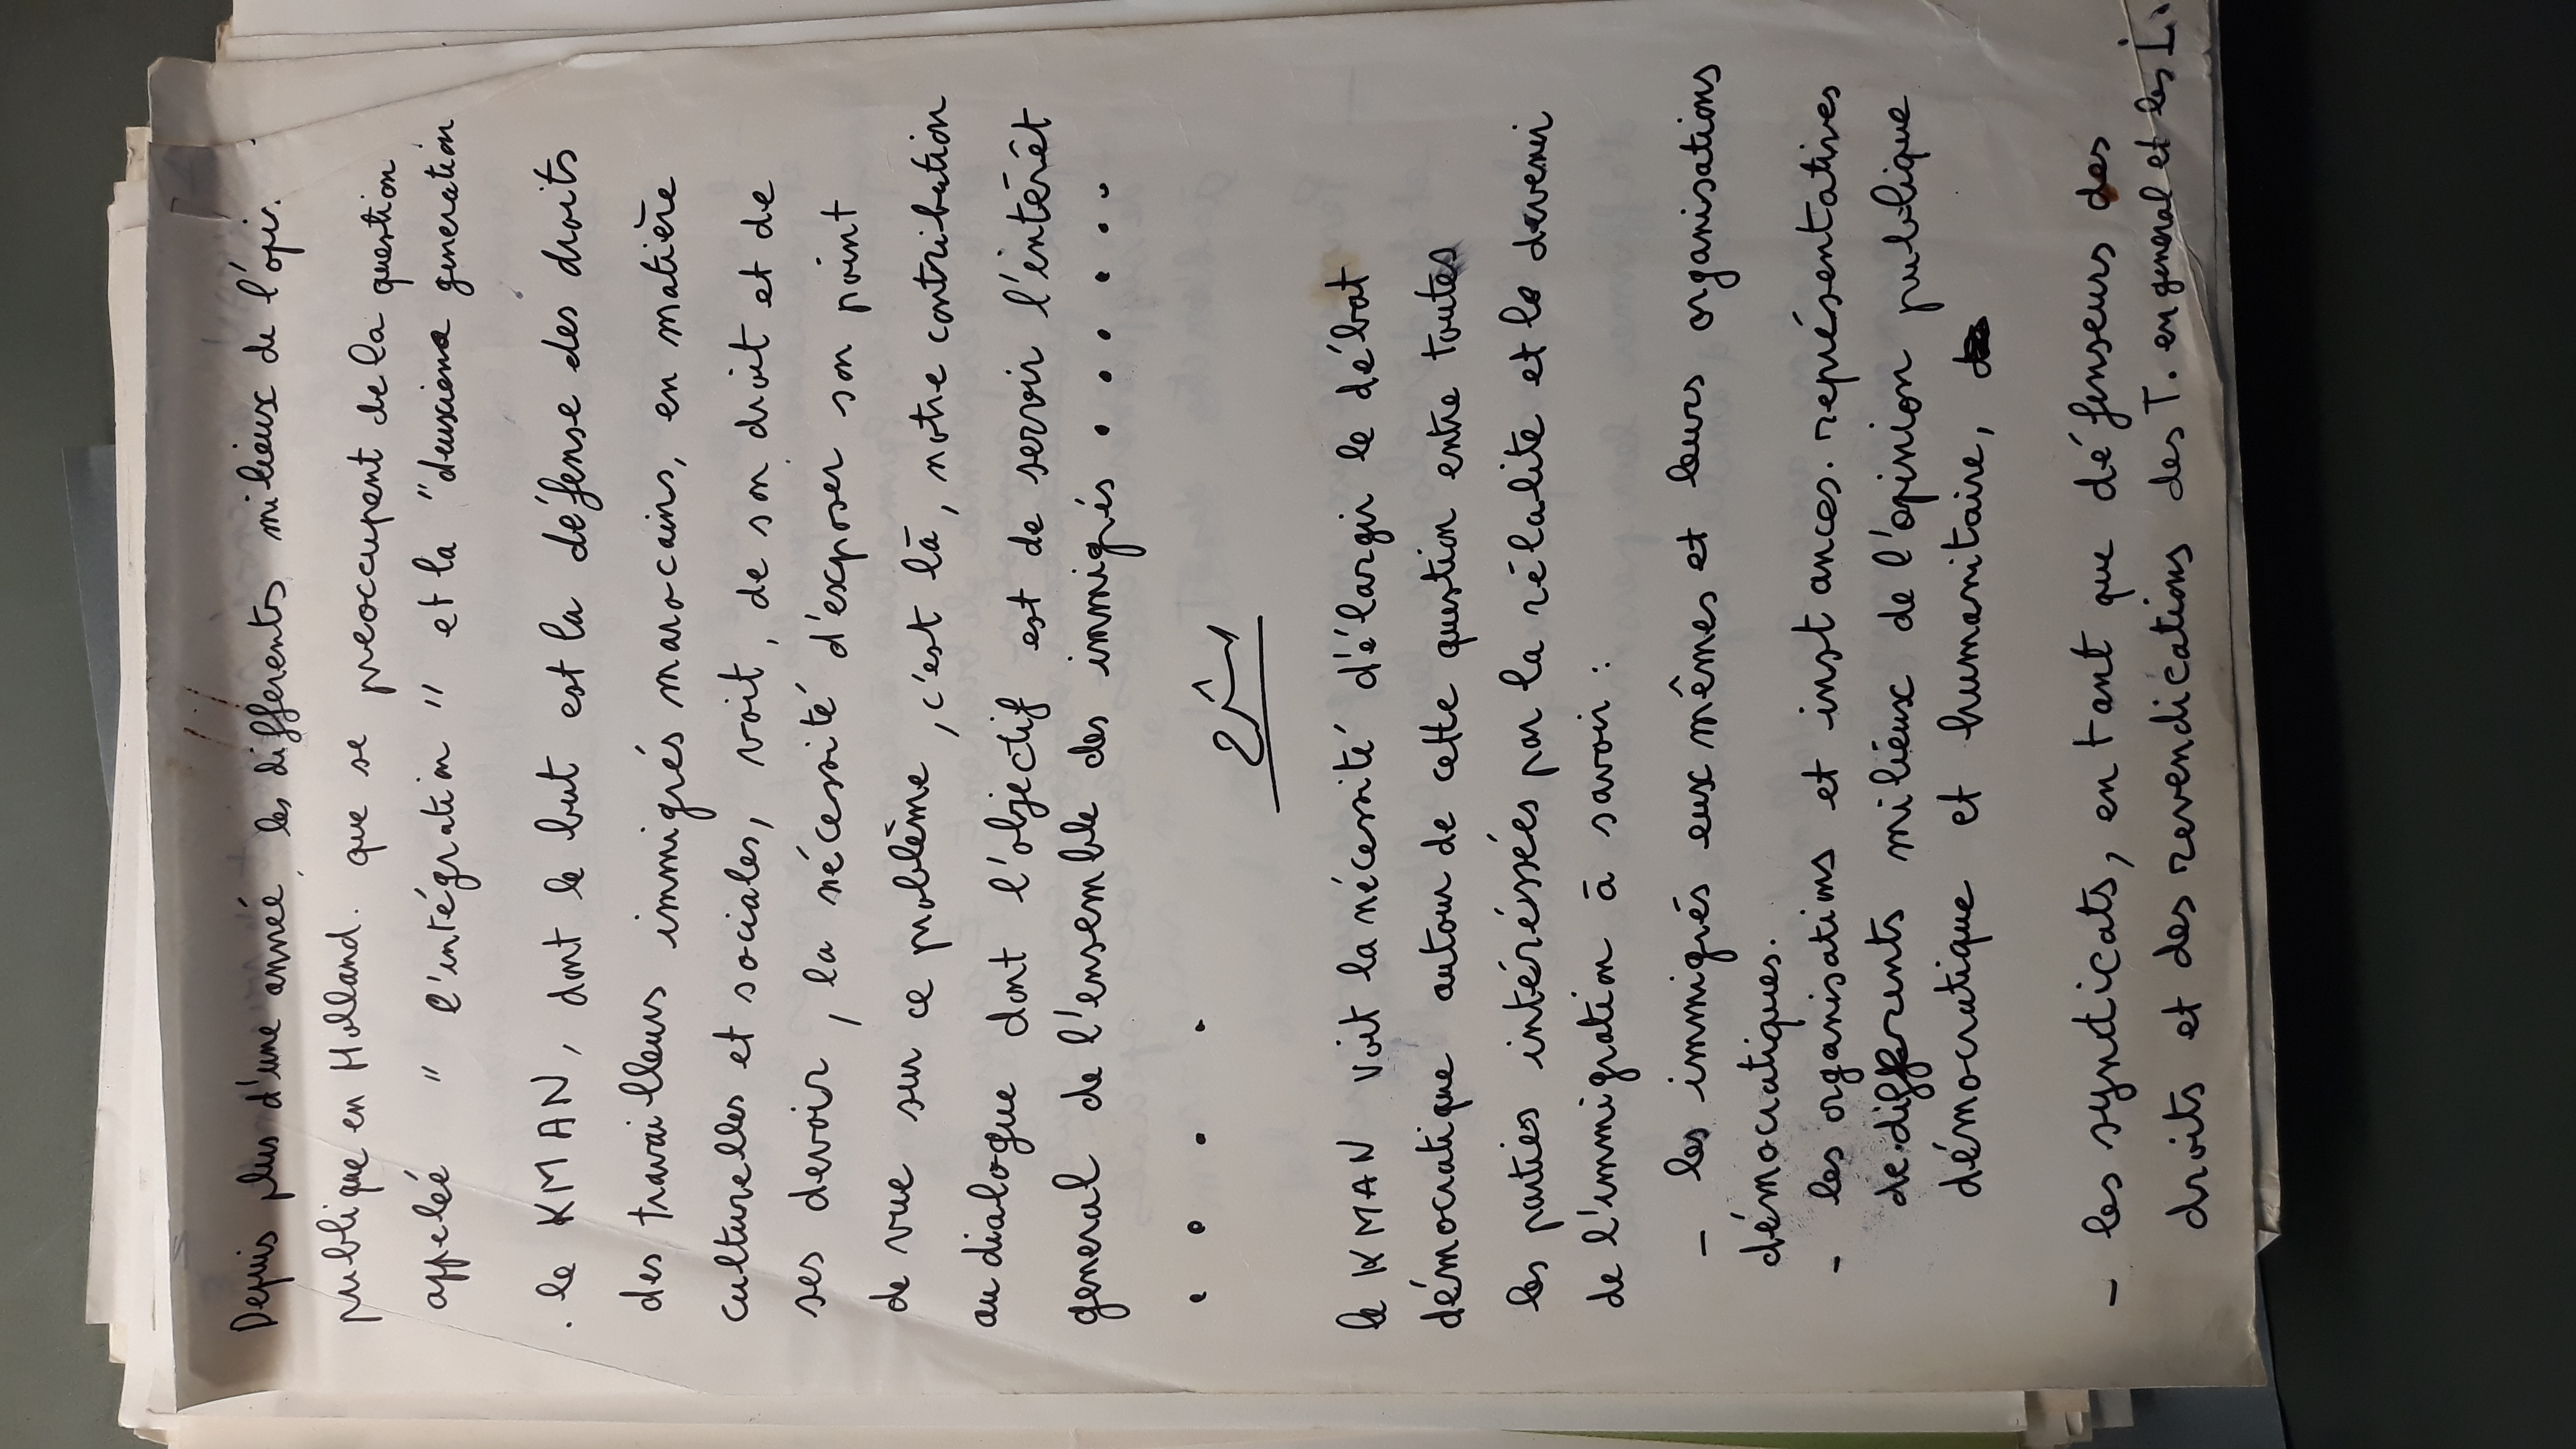 Depuis plus d'une année, les différents milieux de l'opi
publique en Holland. que se preoccupent de la question
appelée " l'intégration " et la "deuxieme generation
. le KMAN, dont le but est la défense des droits
des travailleurs immigrés marocains, en matière
culturelles et sociales, voit, de son droit et de
ses devoir, la nécessité d'exposer son point
de vue sur ce problème, c'est là, notre contribution
au dialogue dont l'objectif est de servir l'intérêt
general de l'ensemble des immigrés . . . . . .
. . . .
le KMAN voit la nécessité d'élargir le débat
démocratique autour de cette question entre toutes
les parties intéréssées par la réalité et le devenir
de l'immigration à savoir :
- les immigrés eux mêmes et leurs organisations
démocratiques.
- les organisations et instances. représentatives
de différents milieux de l'opinion publique
démocratique et humanitaire,
- les syndicats, en tant que défenseurs des
droits et des revendications des T. en general et les